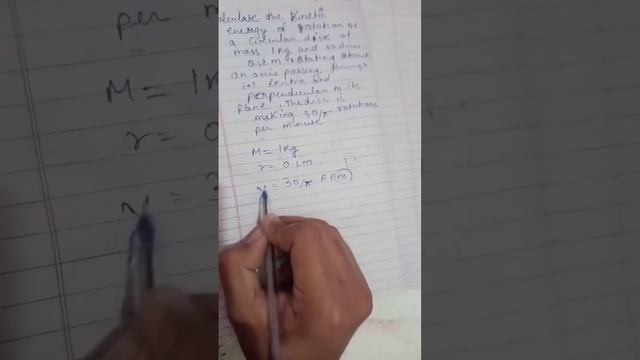 Calculate the Kinetic
energy of rotation of
a Circular disc of
mass 1kg and radius
0.2m rotating about
an axis passing through
its Centre and
perpendicular to its
plane. The disc is
making 30/π rotations
per minute
M = 1kg
r = 0.2m
ν = 30/π RPM